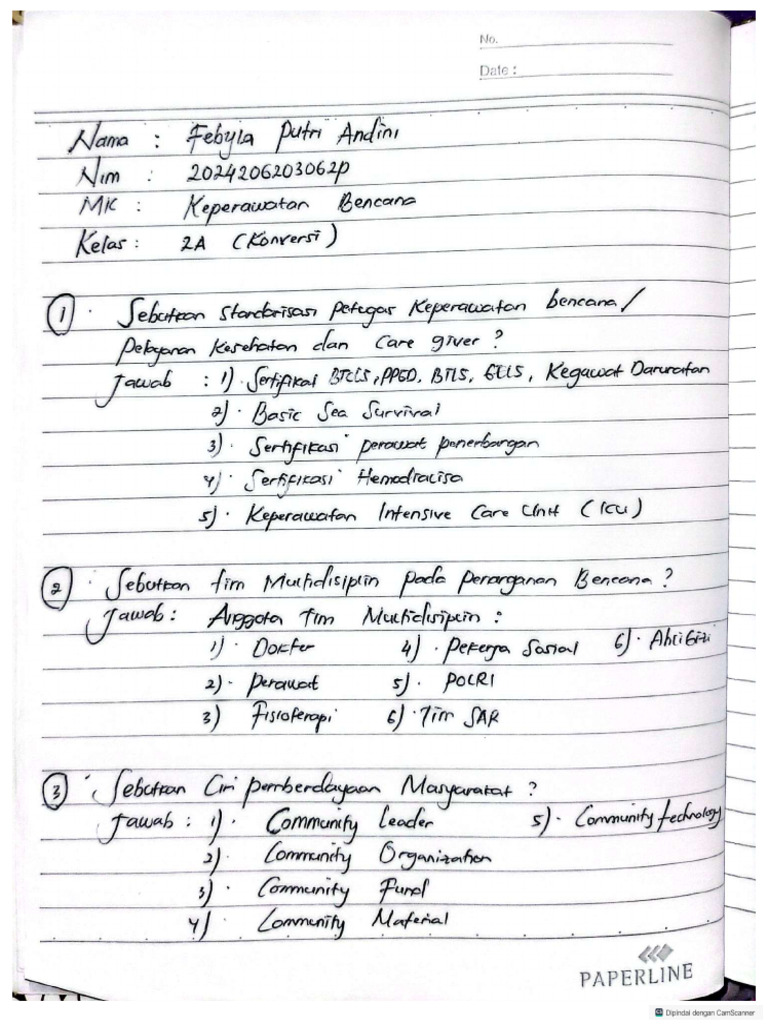 No.
Date :
Nama : Febyla Putri Andini
Nim : 2024206203062p
MK : Keperawatan Bencana
Kelas : 2A (Konversi)
1. Sebutkan Standarisasi petugas Keperawatan bencana/
pelayanan Kesehatan dan Care giver ?
Jawab : 1). Sertifikai BTCLS, PPGD, BTLS, GELS, Kegawat Daruratan
2). Basic Sea Survival
3). Sertifikasi perawat penerbangan
4). Sertifikasi Hemodiacisa
5). Keperawatan Intensive Care Unit (ICU)
2. Sebutkan tim Multidisiplin pada penanganan Bencana ?
Jawab : Anggota tim Multidisiplin :
1). Dokter 4). Pekerja Sosial 6). Ahli Gizi
2). perawat 5). POLRI
3) Fisioterapi 6). Tim SAR
3. Sebutkan Ciri pemberdayaan Masyarakat ?
Jawab : 1). Community Leader 5). Community technology
2) Community Organization
3). Community Fund
4). Community Material
PAPERLINE
CS Dipindai dengan CamScanner